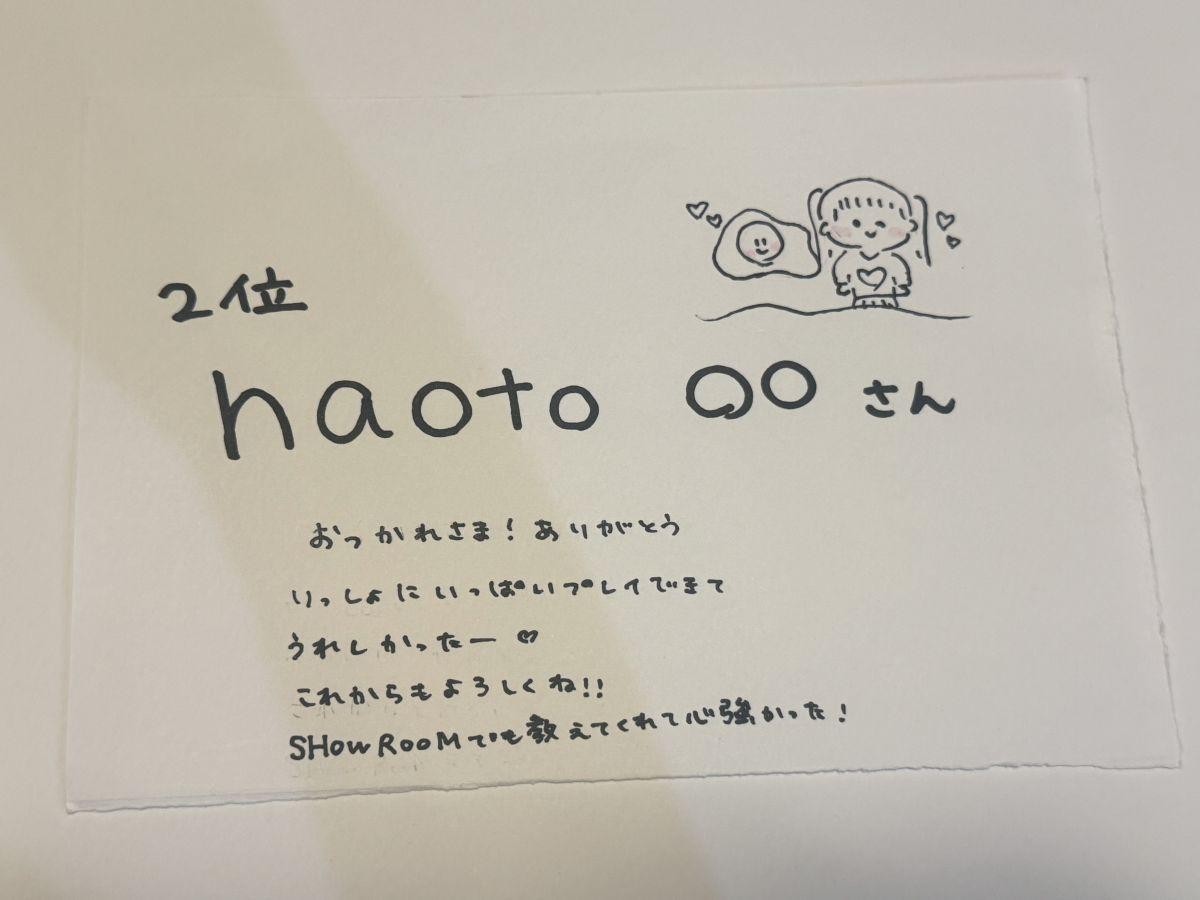 2位
naoto ○○ さん
おつかれさま！ありがとう
いっしょにいっぱいプレイできて
うれしかったー♡
これからもよろしくね!!
SHOWROOMでも教えてくれて心強かった！